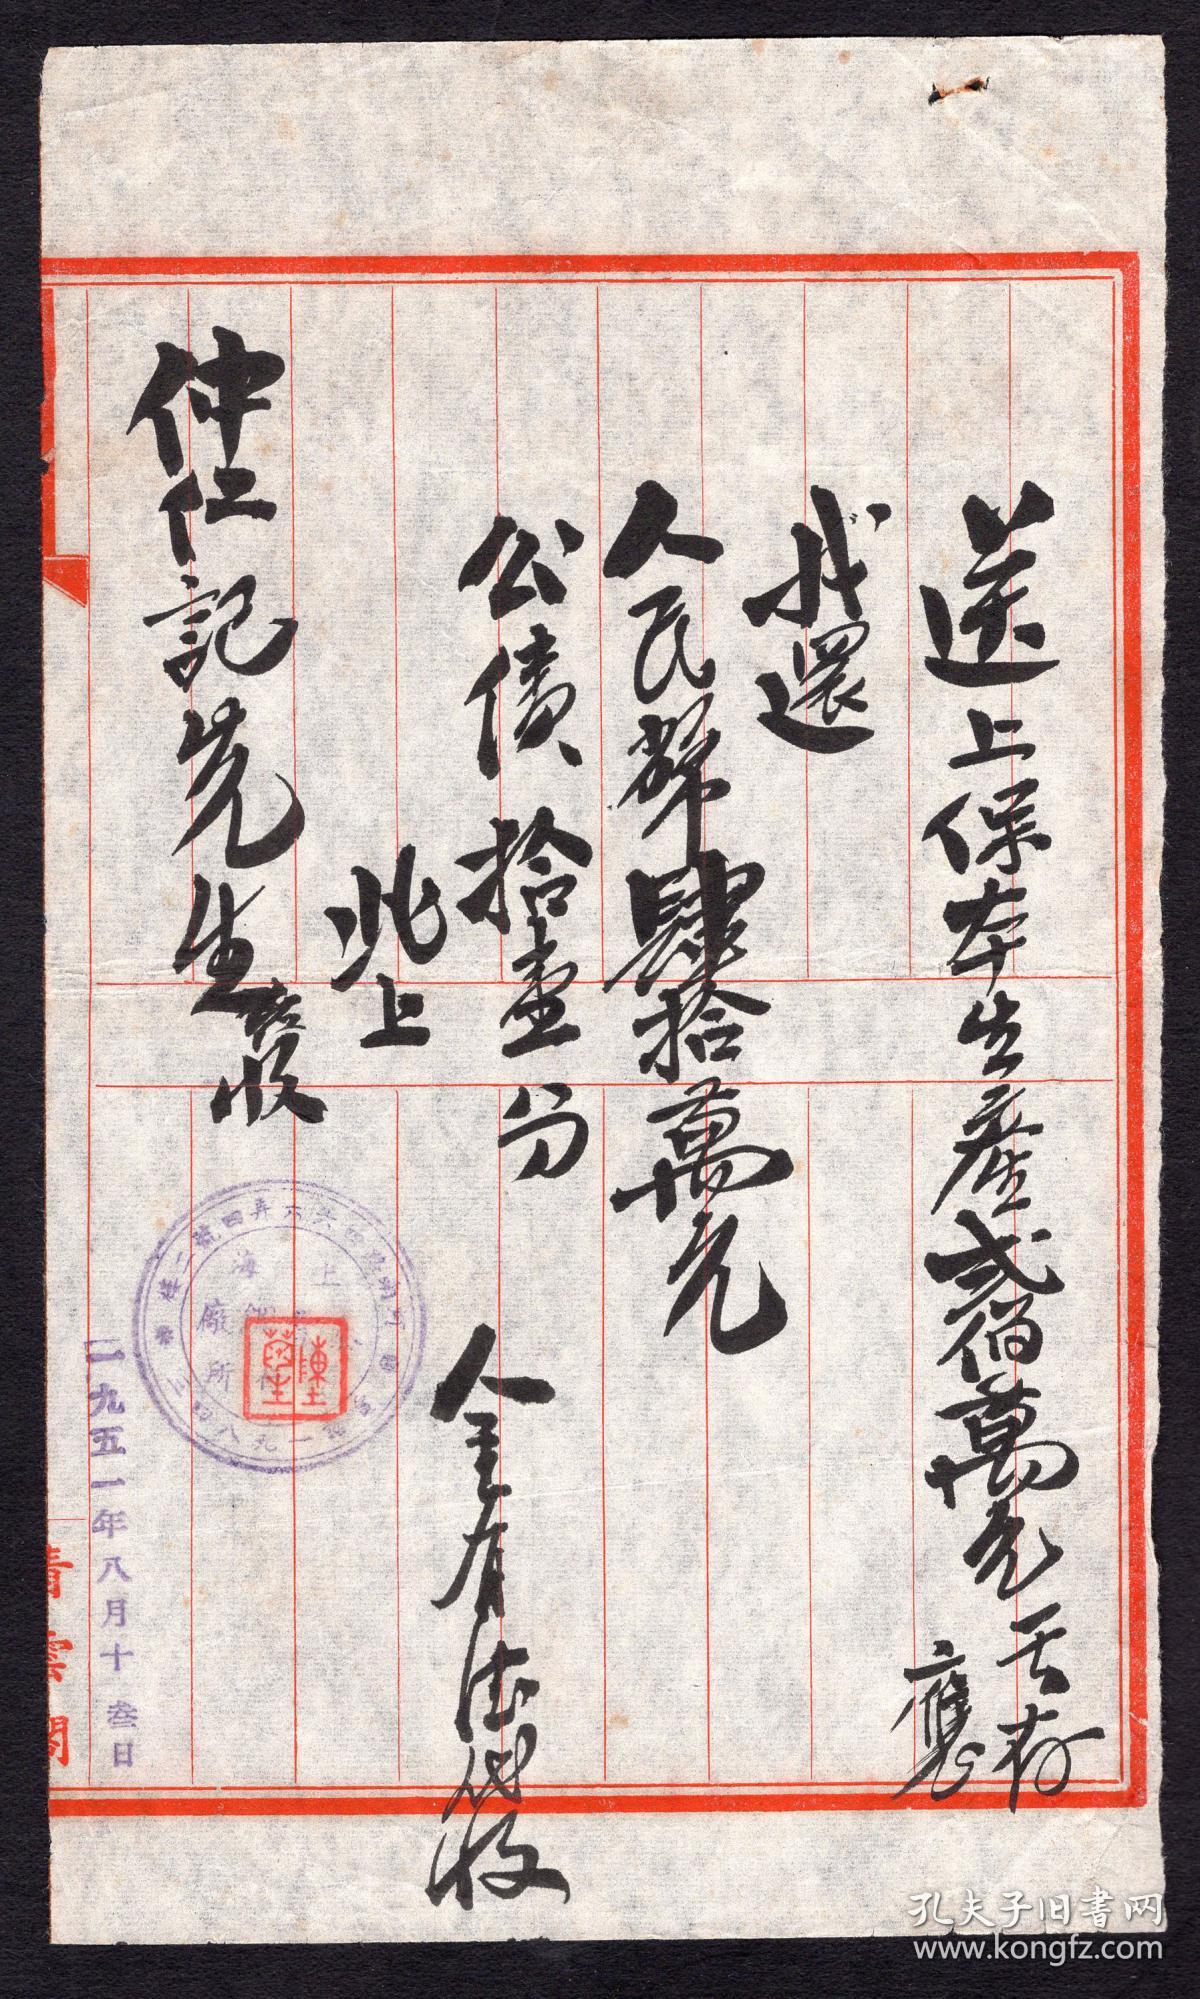 送上保本生產貳佰萬元 存
應
找還
人民幣肆拾萬元
公債拾壹分
金有法代收
此上
仲仁記先生 收
上海
廠
所
陳
一九五一年八月十叁日
孔夫子旧书网
www.kongfz.com